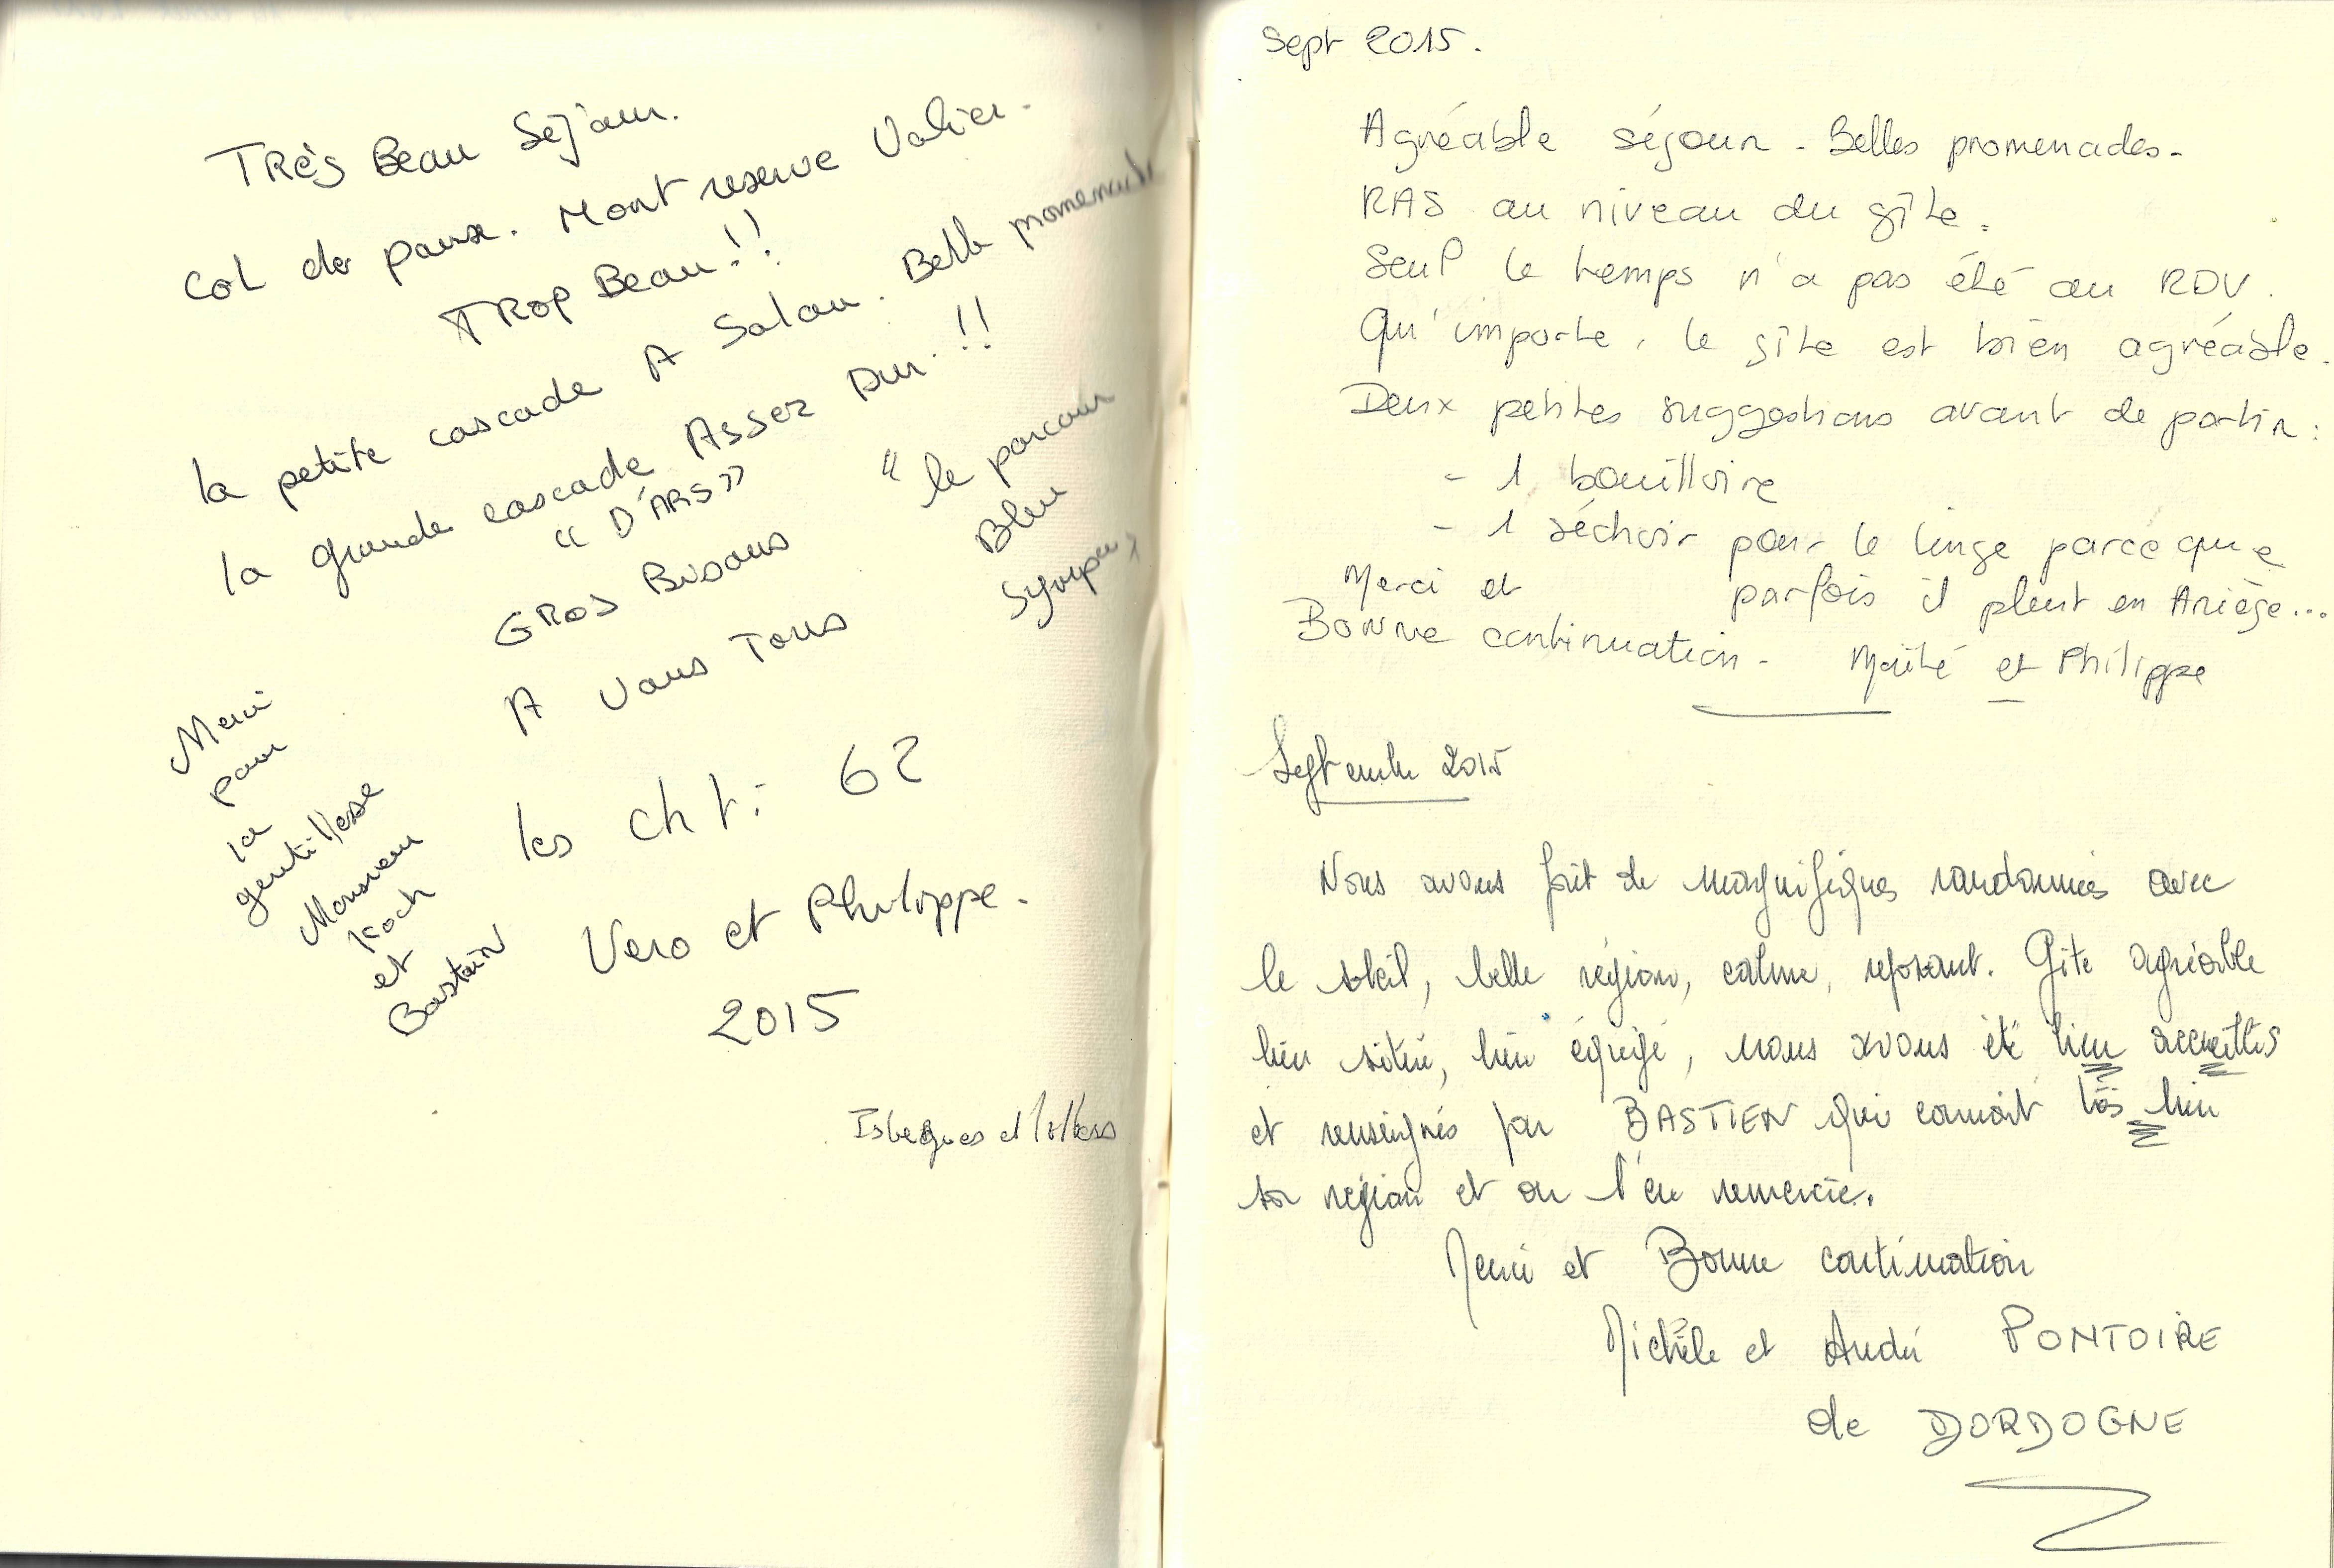 TRès Beau Séjour.
Col de pause. Mont reserve Valier.
TROP Beau !!
la petite cascade A Salau. Belle promenade
la grande cascade Assez Dur. !!
" D'ARS "
" le parcour
Bleu
Sympa "
GROS Bisous
A Vous Tous
Merci
pour
la
gentillesse
Monsieur
Koch
et
Bastien
les cht: 62
Vero et Philippe.
2015
Isbergues et
Sept 2015.
Agréable séjour. Belles promenades.
RAS au niveau du gîte.
Seul le temps n'a pas été au RDV.
Qu'importe, le gîte est bien agréable.
Deux petites suggestions avant de partir :
- 1 bouilloire
- 1 séchoir pour le linge parce que
parfois il pleut en Ariège...
Merci et
Bonne continuation. Maïté et Philippe
Septembre 2015
Nous avons fait de magnifiques randonnées avec
le soleil, belle région, calme, reposant. Gîte agréable
bien situé, bien équipé, nous avons été bien accueillis
et renseignés par BASTIEN qui connait très bien
sa région et on l'en remercie.
Merci et Bonne continuation
Michèle et André PONTOIRE
de DORDOGNE